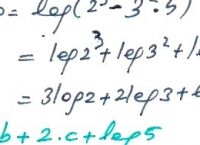 = log(2³ - 3 · 5)
= log2³ + log3² +
= 3log2 + 2log3 +
b + 2.c + log5